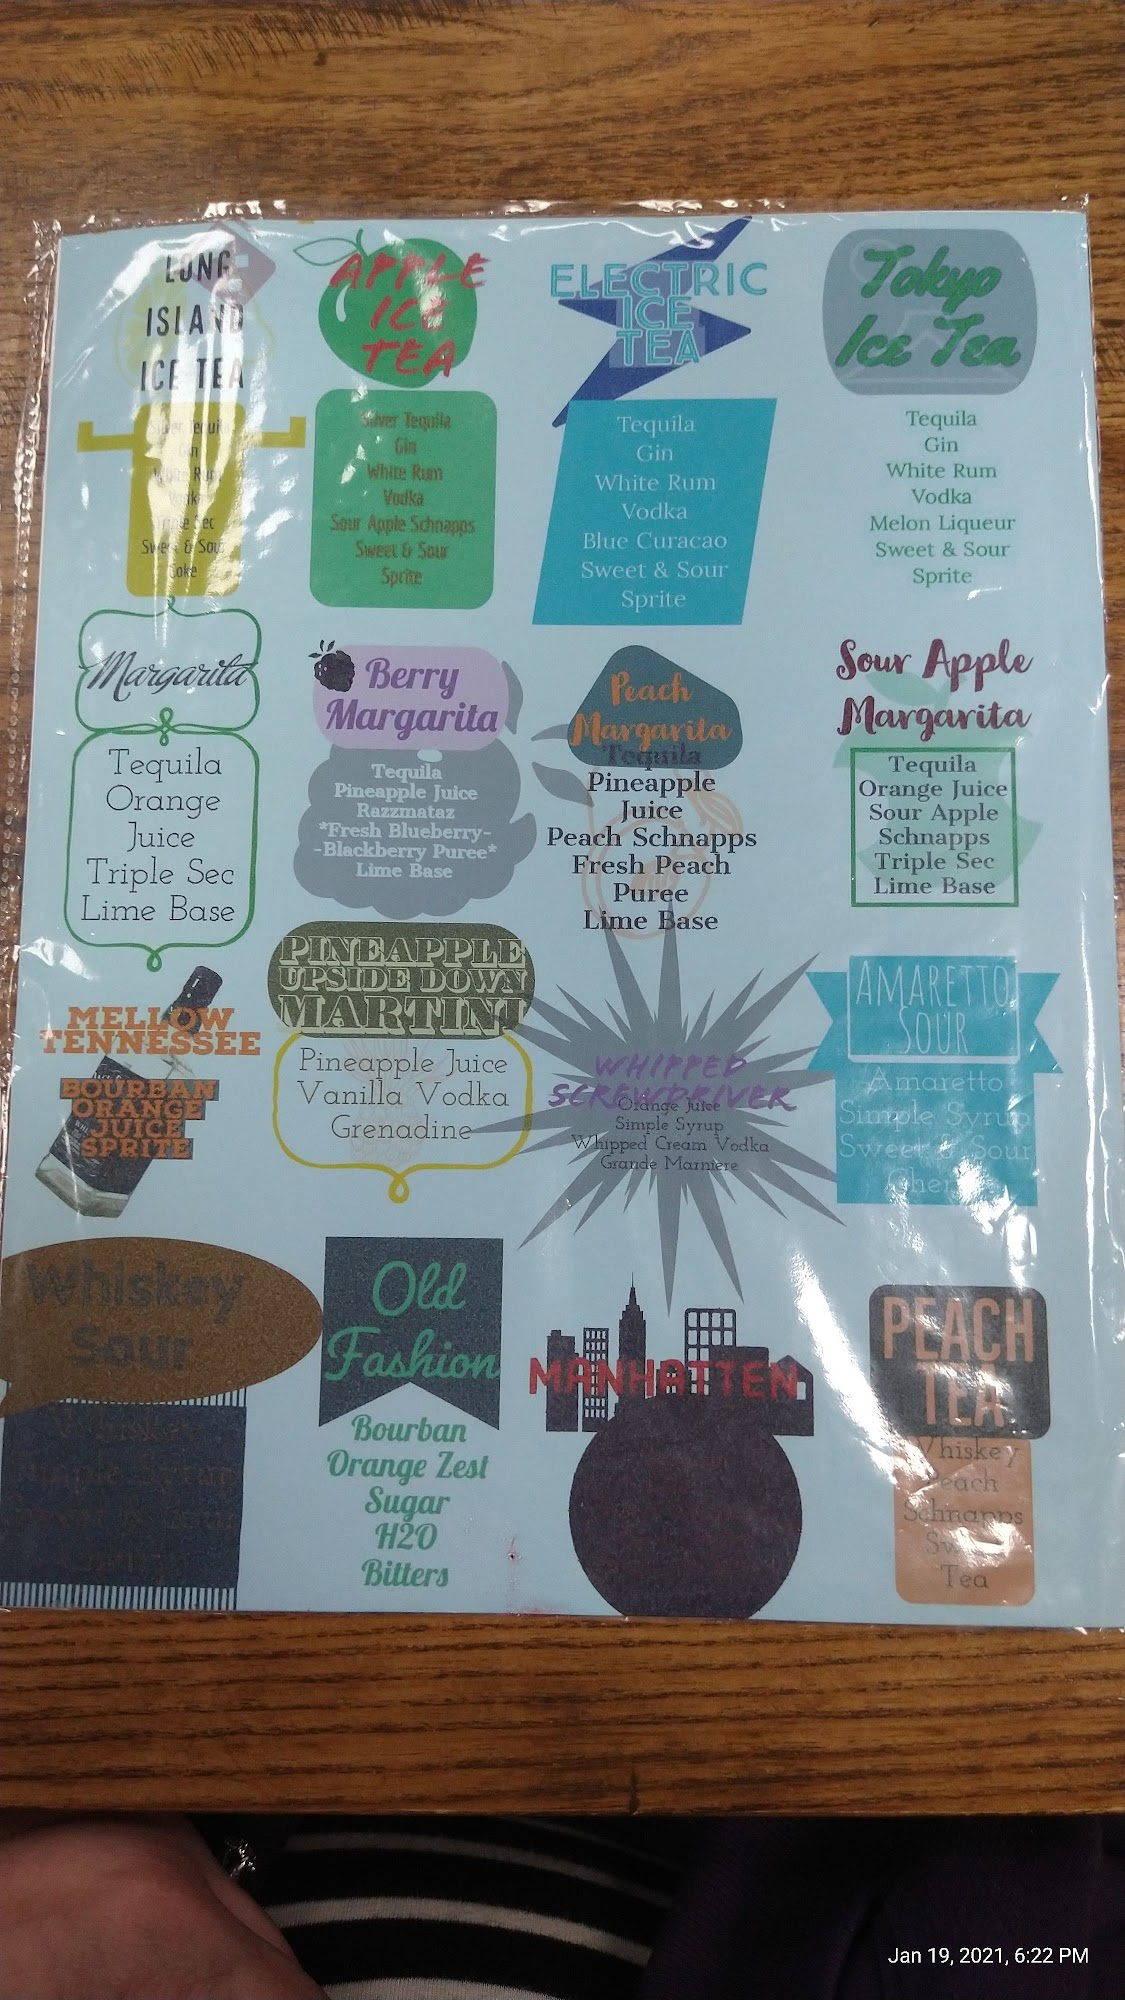 LONG
ISLAND
ICE TEA
Silver Tequila
Gin
White Rum
Vodka
Triple Sec
Sweet & Sour
Coke
APPLE
ICE
TEA
Silver Tequila
Gin
White Rum
Vodka
Sour Apple Schnapps
Sweet & Sour
Sprite
ELECTRIC
ICE
TEA
Tequila
Gin
White Rum
Vodka
Blue Curacao
Sweet & Sour
Sprite
Tokyo
Ice Tea
Tequila
Gin
White Rum
Vodka
Melon Liqueur
Sweet & Sour
Sprite
Margarita
Tequila
Orange
Juice
Triple Sec
Lime Base
Berry
Margarita
Tequila
Pineapple Juice
Razzmataz
*Fresh Blueberry-
-Blackberry Puree*
Lime Base
Peach
Margarita
Tequila
Pineapple
Juice
Peach Schnapps
Fresh Peach
Puree
Lime Base
Sour Apple
Margarita
Tequila
Orange Juice
Sour Apple
Schnapps
Triple Sec
Lime Base
MELLOW
TENNESSEE
BOURBAN
ORANGE
JUICE
SPRITE
PINEAPPLE
UPSIDE DOWN
MARTINI
Pineapple Juice
Vanilla Vodka
Grenadine
WHIPPED
SCREWDRIVER
Orange Juice
Simple Syrup
Whipped Cream Vodka
Grande Marniere
AMARETTO
SOUR
Amaretto
Simple Syrup
Sweet & Sour
Whiskey
Sour
Whiskey
Simple Syrup
Old
Fashion
Bourban
Orange Zest
Sugar
H2O
Bitters
MANHATTEN
PEACH
TEA
Whiskey
Peach
Schnapps
Tea
Jan 19, 2021, 6:22 PM